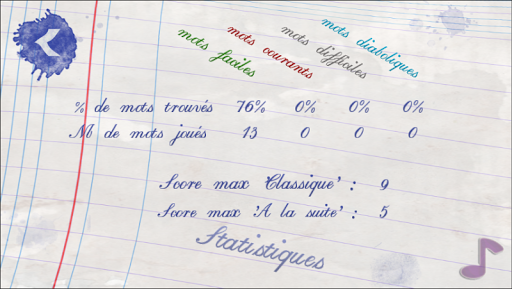 mots faciles
mots courants
mots difficiles
mots diaboliques
% de mots trouvés 76% 0% 0% 0%
Nb de mots joués 13 0 0 0
Score max 'Classique' : 9
Score max 'A la suite' : 5
Statistiques